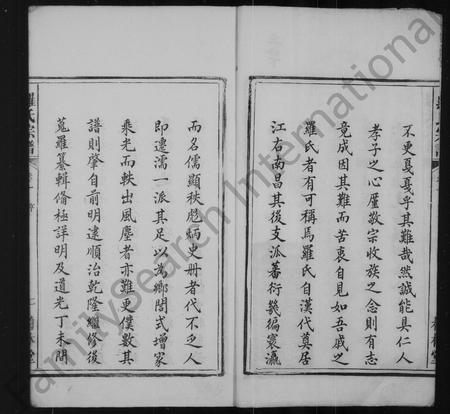 不更戛戛乎其難哉然誠能具仁人
孝子之心厪敬宗收族之念則有志
竟成因其難而苦衷自見如吾戚之
羅氏者有可稱焉羅氏自漢代奠居
江右南昌其後支派蕃衍甆徧寰瀛
而名儒顯秩彪炳史冊者代不乏人
即遷濡一派其足以為鄉閭式增家
乘光而軼出風塵者亦難更僕數其
譜則肇自前明逮順治乾隆繼修後
蒐羅纂輯俻極詳明及道光丁未間
羅氏宗譜
序
FamilySearch International